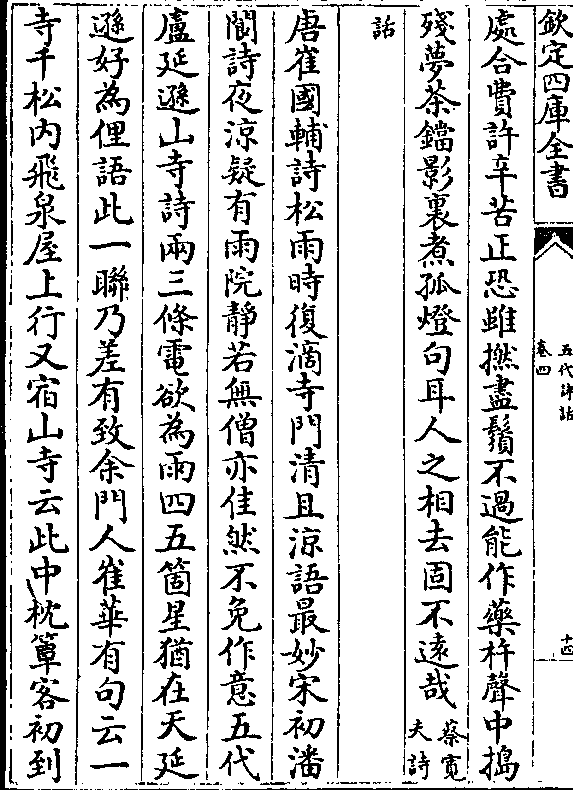 欽定四庫全書
五代詩話
卷四
十四
處合費許辛苦正恐雖撚盡鬚不過能作藥杵聲中搗
殘夢茶鐺影裏煮孤燈句耳人之相去固不遠哉蔡寬夫詩
話
唐崔國輔詩松雨時復滴寺門清且涼語最妙宋初潘
閬詩夜涼疑有雨院靜若無僧亦佳然不免作意五代
盧延遜山寺詩兩三條電欲為雨四五箇星猶在天延
遜好為俚語此一聯乃差有致余門人崔華有句云一
寺千松內飛泉屋上行又宿山寺云此中枕簟客初到